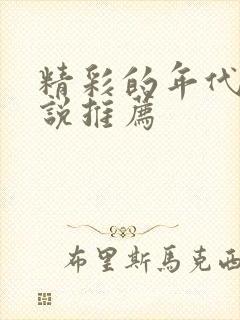 精彩的年代
說推薦
布里斯馬克西